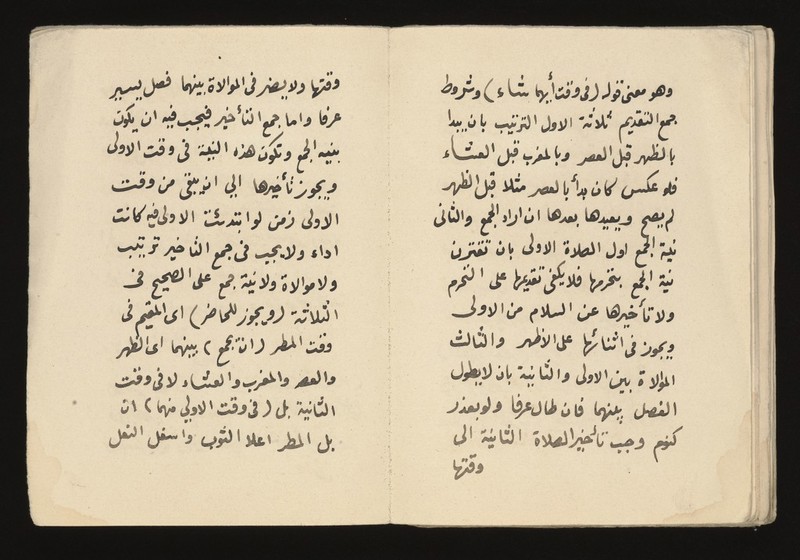 وهو معنى قوله (فى وقت أيهما شاء) وشروط
جمع التقديم ثلاثة الاول الترتيب بان يبدا
بالظهر قبل العصر وبالمغرب قبل العشاء
فلو عكس كان بدأ بالعصر مثلا قبل الظهر
لم يصح ويعيدها بعدها ان اراد الجمع والثانى
نية الجمع اول الصلاة الاولى بان تقترن
نية الجمع بتحرمها فلا يكفى تقديمها على التحرم
ولا تأخيرها عن السلام من الاولى
ويجوز فى اثنائها على الأظهر والثالث
الموالاة بين الاولى والثانية بان لا يطول
الفصل بينهما فان طال عرفا ولو بعذر
كنوم وجب تأخير الصلاة الثانية الى
وقتها
وقتها ولا يضر فى الموالاة بينهما فصل يسير
عرفا واما جمع التأخير فيجب فيه ان يكون
بنية الجمع وتكون هذه النية فى وقت الاولى
ويجوز تأخيرها الى ان يبقى من وقت
الاولى زمن لو ابتدئت الاولى فيه كانت
اداء ولا يجب فى جمع التاخير ترتيب
ولا موالاة ولا نية جمع على الصحيح فى
الثلاثة (ويجوز للحاضر) اى المقيم فى
وقت المطر (ان يجمع) بينهما اى الظهر
والعصر والمغرب والعشاء لا فى وقت
الثانية بل (فى وقت الاولى منهما) ان
بل المطر اعلا الثوب واسفل النعل